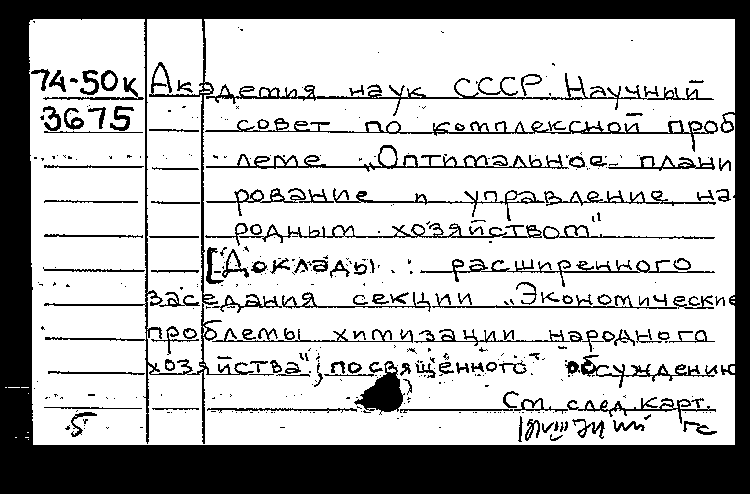 74-50к Академия наук СССР. Научный
3675 совет по комплексной проб
леме „Оптимальное плани
рование и управление на-
родным хозяйством".
[Доклады : расширенного
заседания секции „Экономические
проблемы химизации народного
хозяйства", посвящённого обсуждению
См. след. карт.
5